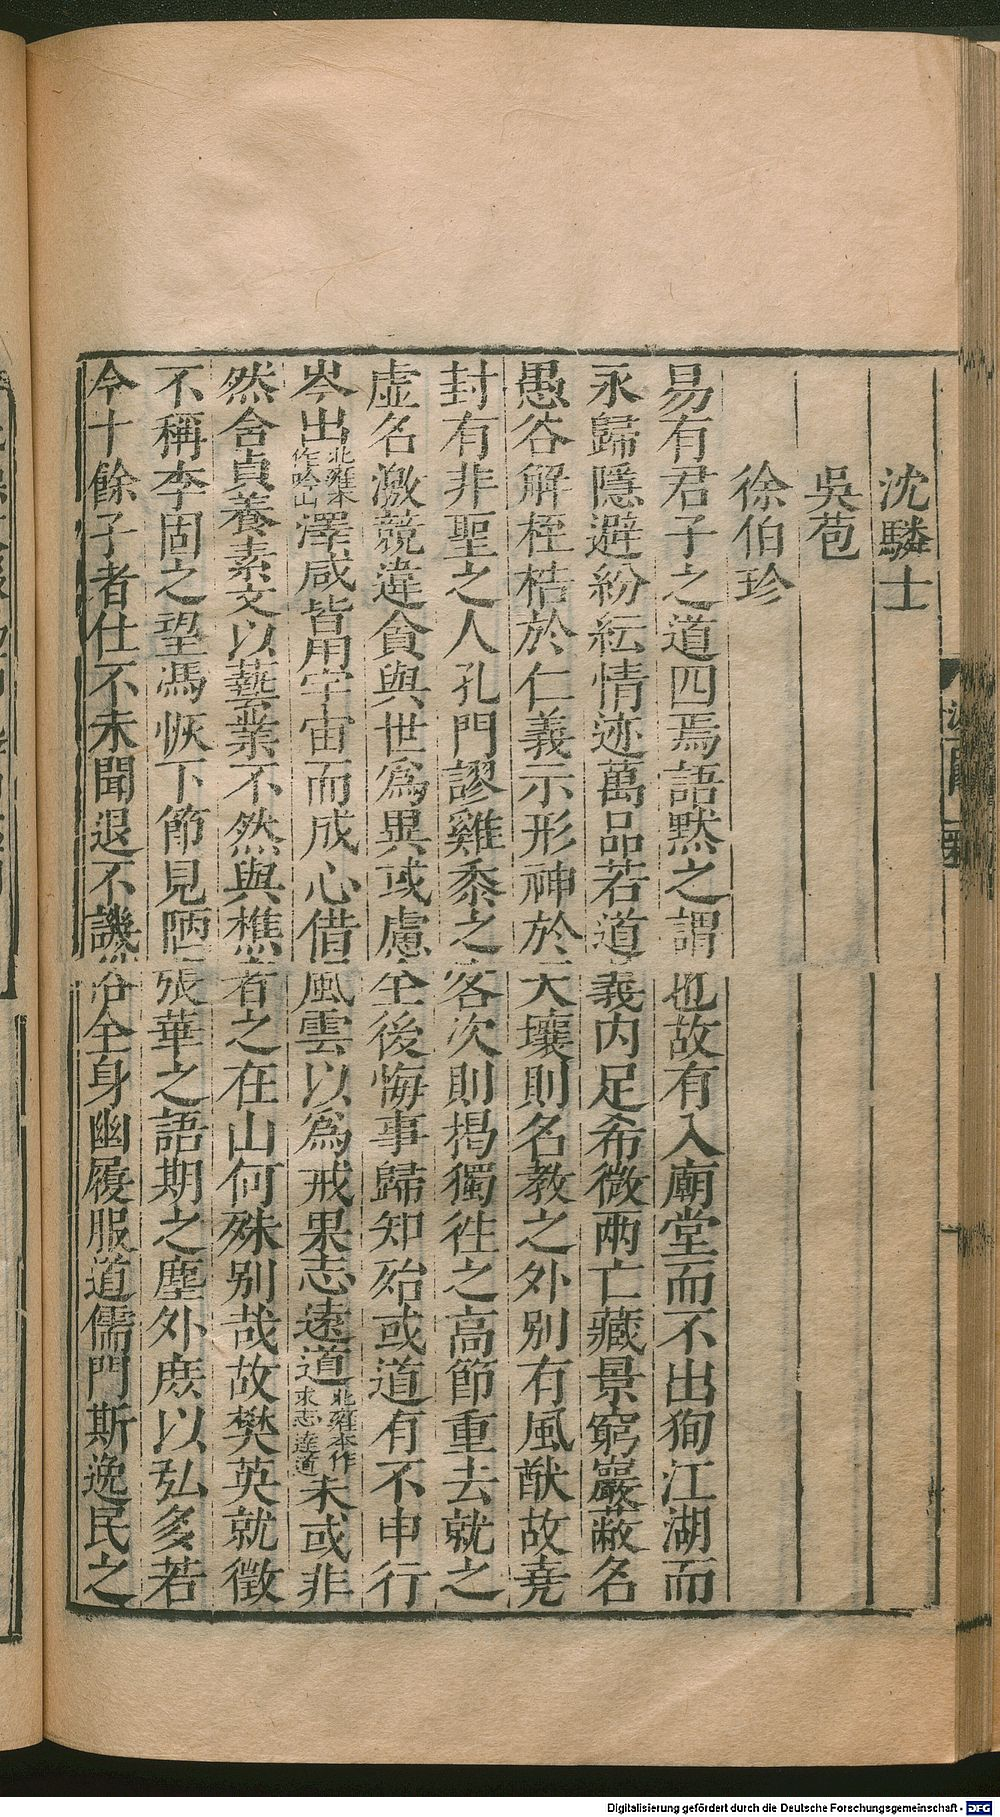 沈驎士
吳苞
徐伯珍
易有君子之道四焉語默之謂也故有入廟堂而不出徇江湖而
永歸隱避紛紜情迹萬品若道義内足希微兩亡藏景窮巖蔽名
愚谷解桎梏於仁義示形神於天壤則名教之外别有風猷故堯
封有非聖之人孔門謬雞黍之客次則揭獨徃之高節重去就之
虚名激競違貪與世爲異或慮全後悔事歸知殆或道有不申行
岑出北雍本作吟山澤咸皆用宇宙而成心借風雲以爲戒果志逺道北雍本作求志達道未或非
然含貞養素文以藝業不然與樵者之在山何殊别哉故樊英就徵
不稱李固之望馮恢下節見陋張華之語期之塵外庶以弘多若
今十餘子者仕不未聞退不譏俗全身幽履服道儒門斯逸民之
Digitalisierung gefördert durch die Deutsche Forschungsgemeinschaft - DFG